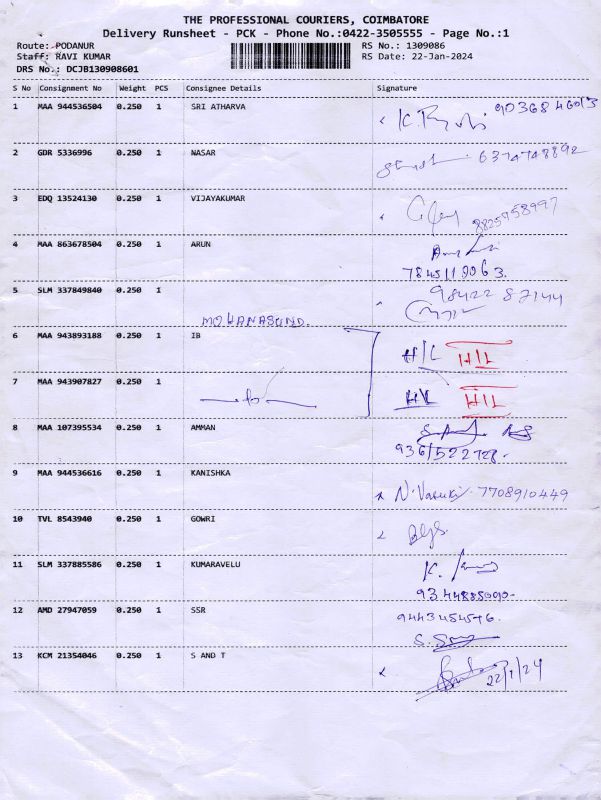 THE PROFESSIONAL COURIERS, COIMBATORE
Delivery Runsheet - PCK - Phone No.:0422-3505555 - Page No.:1
Route: PODANUR RS No.: 1309086
Staff: RAVI KUMAR RS Date: 22-Jan-2024
DRS No.: DCJB130908601
S No Consignment No Weight PCS Consignee Details Signature
1 MAA 944536504 0.250 1 SRI ATHARVA
2 GDR 5336996 0.250 1 NASAR 6374748892
3 EDQ 13524130 0.250 1 VIJAYAKUMAR 8825958997
4 MAA 863678504 0.250 1 ARUN
5 SLM 337849840 0.250 1
MOHANASUND.
6 MAA 943893188 0.250 1 IB H/L HIL
7 MAA 943907827 0.250 1 HIL
8 MAA 107395534 0.250 1 AMMAN
9 MAA 944536616 0.250 1 KANISHKA N. Vasuki 7708910449
10 TVL 8543940 0.250 1 GOWRI
11 SLM 337885586 0.250 1 KUMARAVELU
12 AMD 27947059 0.250 1 SSR
13 KCM 21354046 0.250 1 S AND T 22/1/24